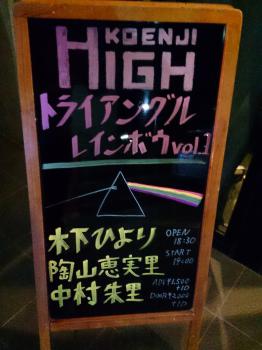 KOENJI
HIGH
トライアングル
レインボウ vol.1
木下ひより
陶山恵実里
中村朱里
OPEN
18:30
START
19:00
ADV ¥2,500
+1D
DOOR ¥3,000
+1D